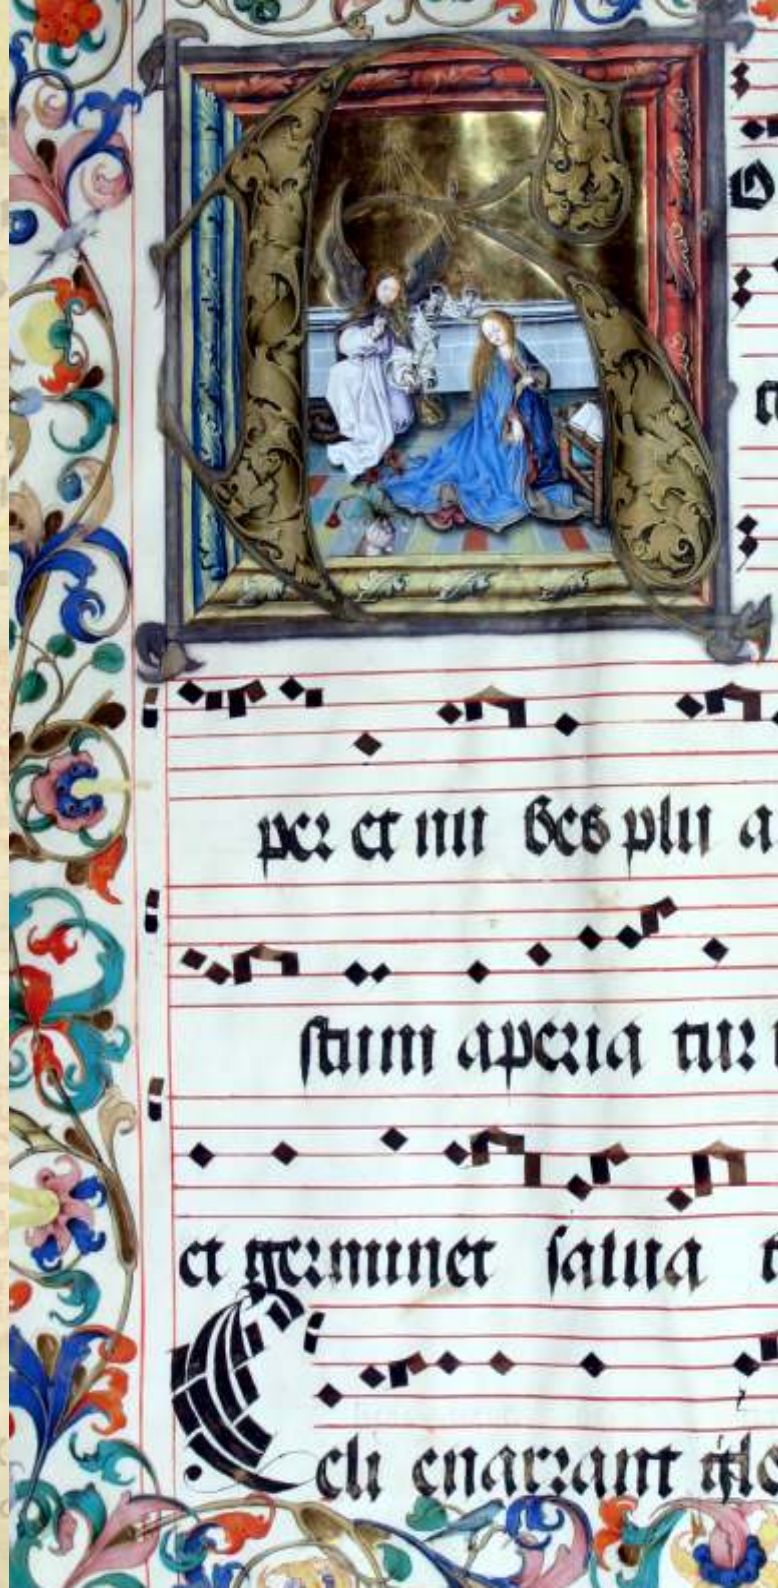 R o
a
per et nu bes plu a
stum aperia tur
et germinet salua
Celi enarrant glo